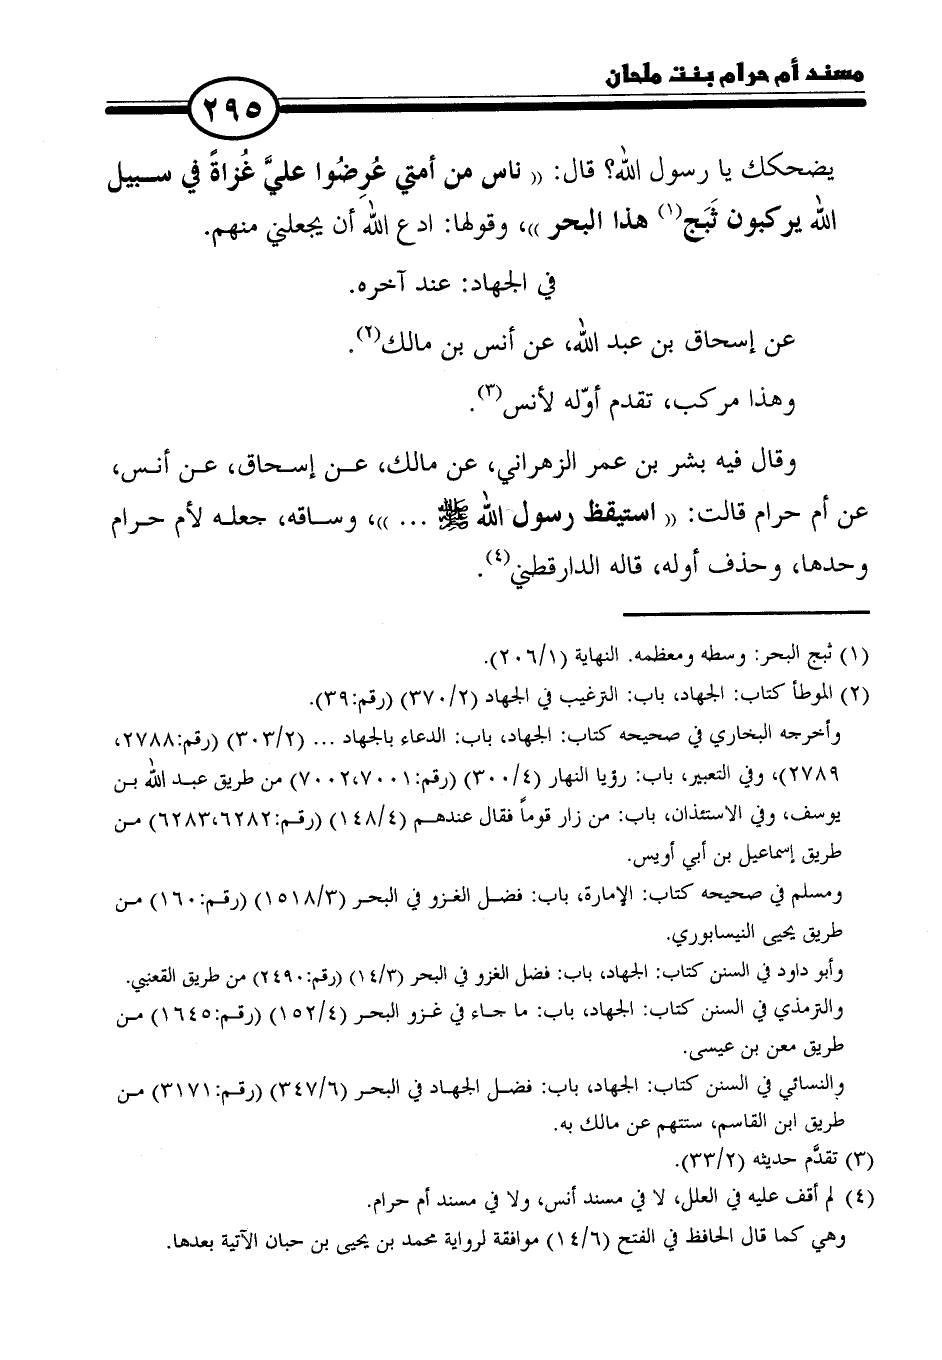 مسند أم حرام بنت ملحان
٢٩٥
يضحكك يا رسول الله؟ قال: « ناس من أمتي عُرِضُوا عليَّ غُزاةً في سبيل
الله يركبون ثَبَج(١) هذا البحر »، وقولها: ادع الله أن يجعلني منهم.
في الجهاد: عند آخره.
عن إسحاق بن عبد الله، عن أنس بن مالك(٢).
وهذا مركب، تقدم أوّله لأنس(٣).
وقال فيه بشر بن عمر الزهراني، عن مالك، عن إسحاق، عن أنس،
عن أم حرام قالت: « استيقظ رسول الله ﷺ ... »، وساقه، جعله لأم حرام
وحدها، وحذف أوله، قاله الدارقطني(٤).
(١) ثبج البحر: وسطه ومعظمه. النهاية (٢٠٦/١).
(٢) الموطأ كتاب: الجهاد، باب: الترغيب في الجهاد (٣٧٠/٢) (رقم:٣٩).
وأخرجه البخاري في صحيحه كتاب: الجهاد، باب: الدعاء بالجهاد ... (٣٠٣/٢) (رقم:٢٧٨٨،
٢٧٨٩)، وفي التعبير، باب: رؤيا النهار (٣٠٠/٤) (رقم:٧٠٠٢،٧٠٠١) من طريق عبد الله بن
يوسف، وفي الاستئذان، باب: من زار قوماً فقال عندهم (١٤٨/٤) (رقم:٦٢٨٣،٦٢٨٢) من
طريق إسماعيل بن أبي أويس.
ومسلم في صحيحه كتاب: الإمارة، باب: فضل الغزو في البحر (١٥١٨/٣) (رقم:١٦٠) من
طريق يحيى النيسابوري.
وأبو داود في السنن كتاب: الجهاد، باب: فضل الغزو في البحر (١٤/٣) (رقم:٢٤٩٠) من طريق القعنبي.
والترمذي في السنن كتاب: الجهاد، باب: ما جاء في غزو البحر (١٥٢/٤) (رقم:١٦٤٥) من
طريق معن بن عيسى.
والنسائي في السنن كتاب: الجهاد، باب: فضل الجهاد في البحر (٣٤٧/٦) (رقم:٣١٧١) من
طريق ابن القاسم، ستتهم عن مالك به.
(٣) تقدَّم حديثه (٣٣/٢).
(٤) لم أقف عليه في العلل، لا في مسند أنس، ولا في مسند أم حرام.
وهي كما قال الحافظ في الفتح (١٤/٦) موافقة لرواية محمد بن يحيى بن حبان الآتية بعدها.